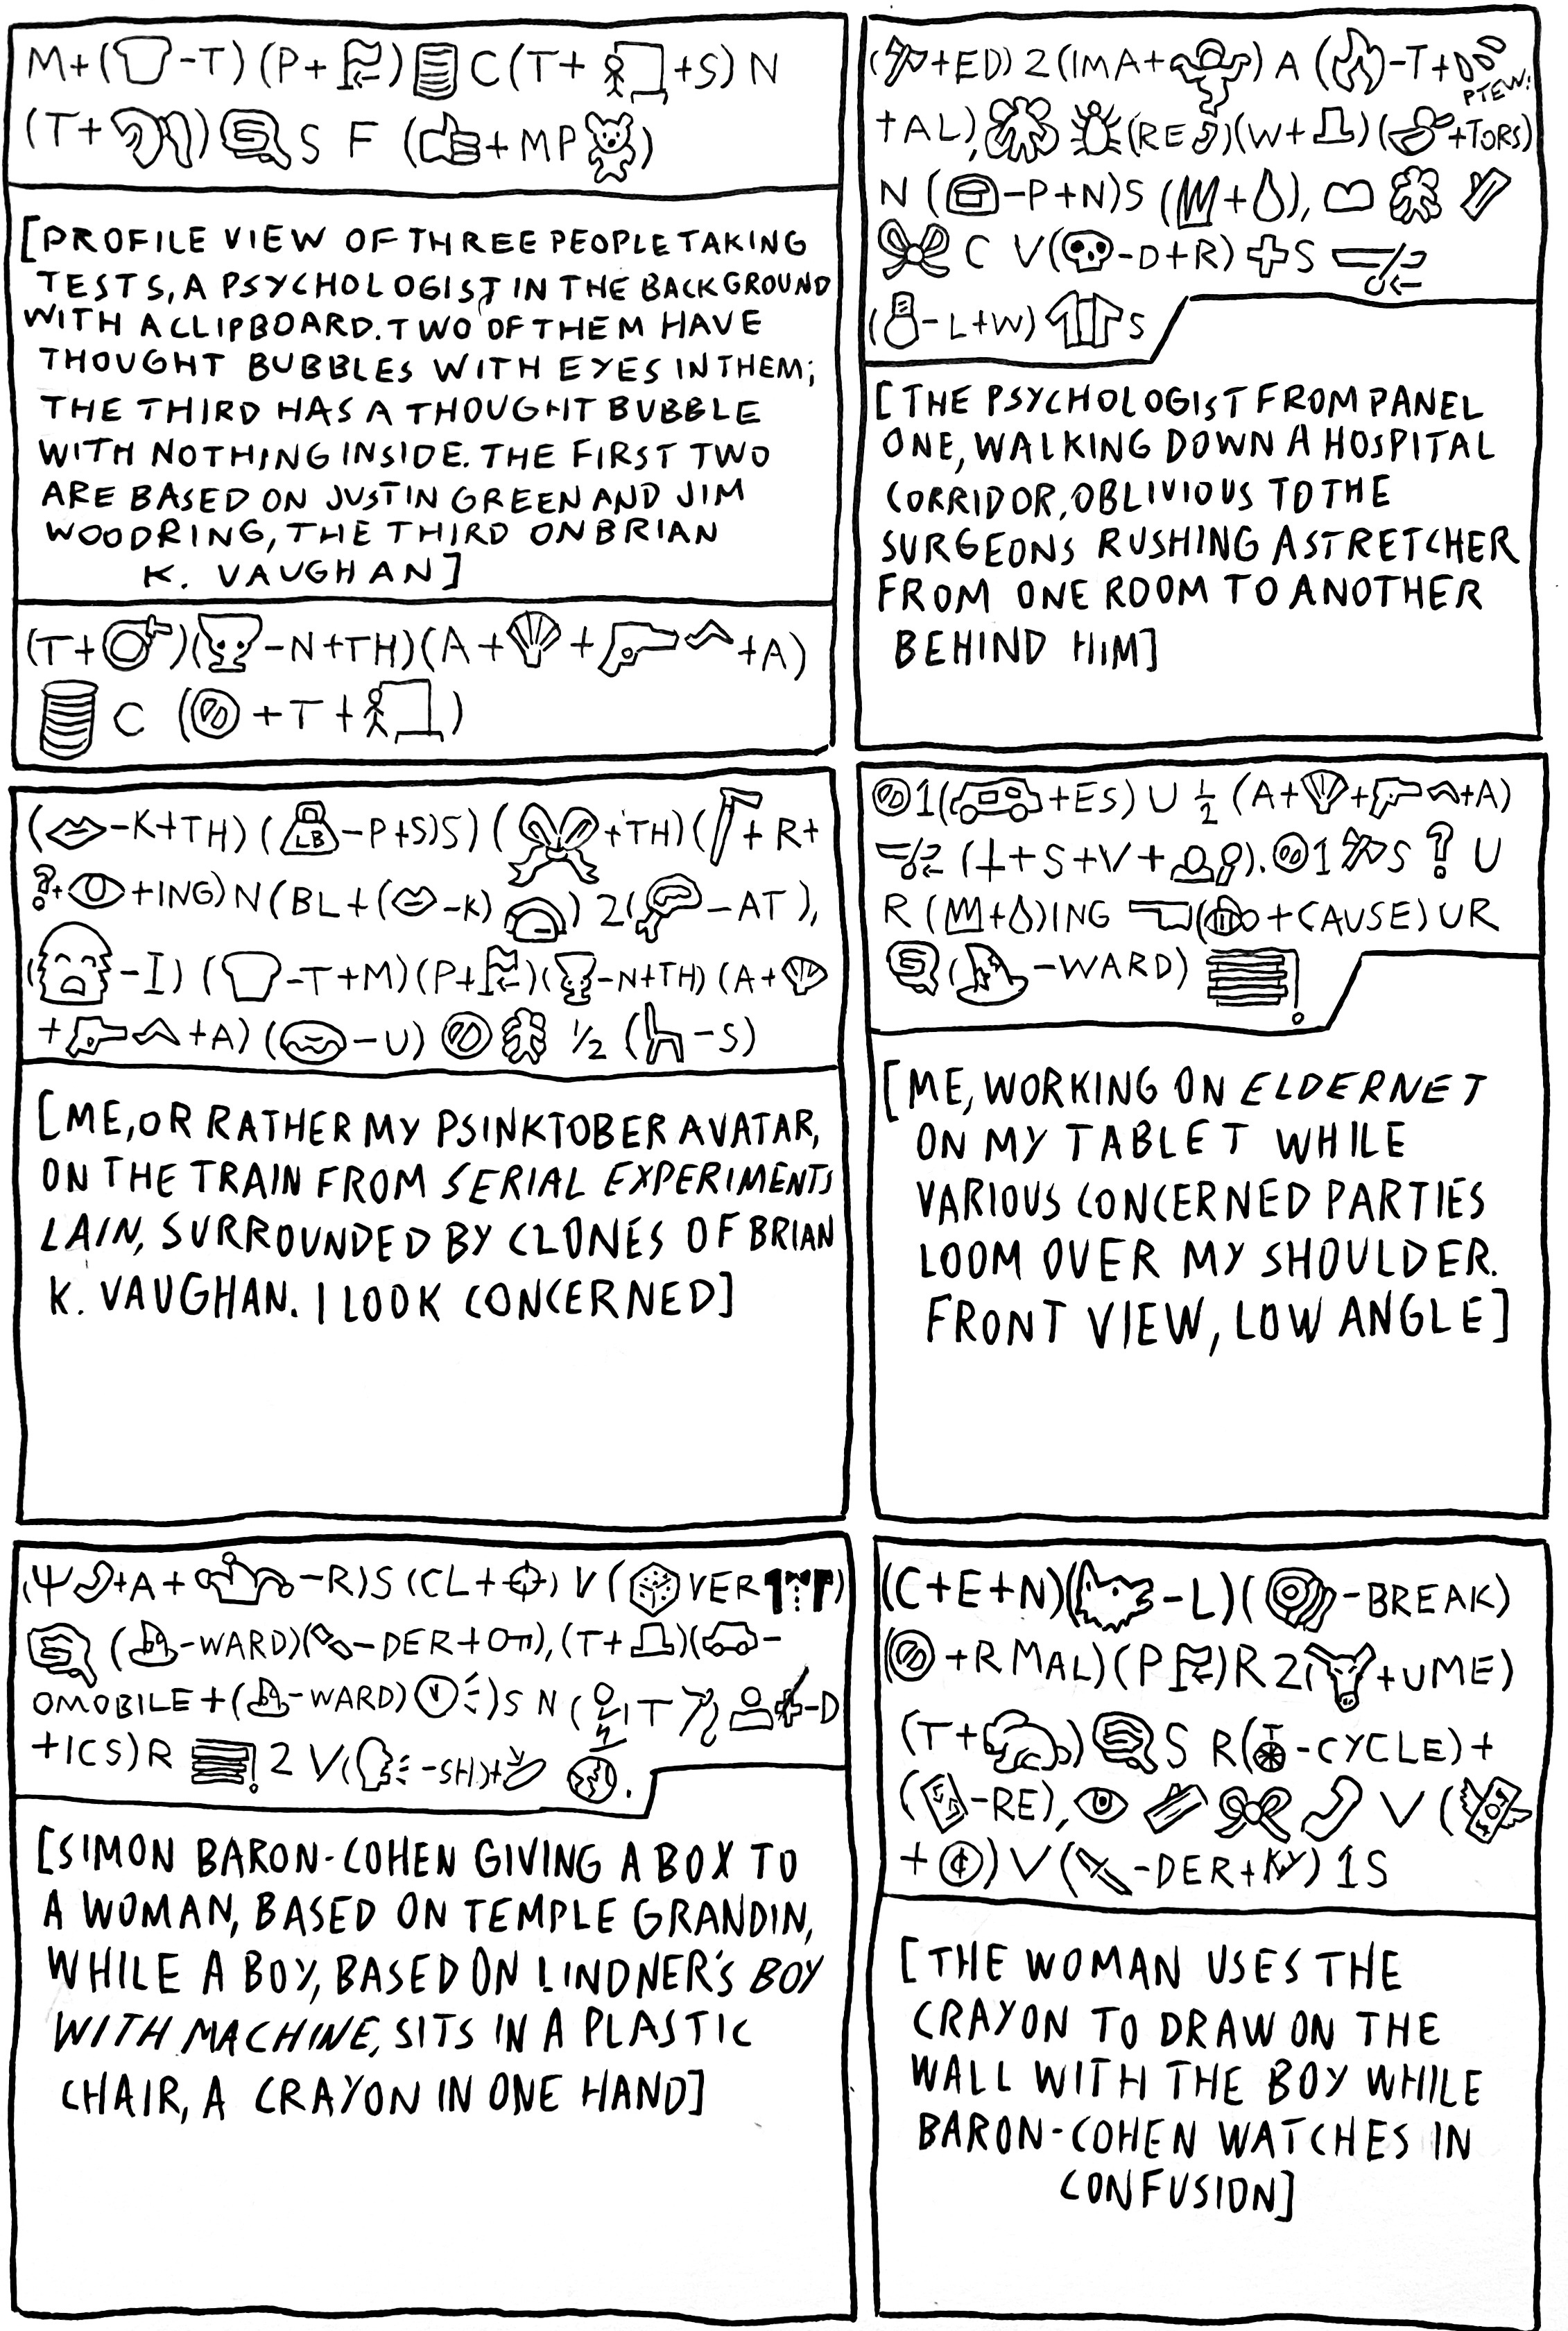 M+( -T) (P+ ) C (T+ +S) N
(T+ ) S F ( +MP )
[PROFILE VIEW OF THREE PEOPLE TAKING
TESTS, A PSYCHOLOGIST IN THE BACKGROUND
WITH A CLIPBOARD. TWO OF THEM HAVE
THOUGHT BUBBLES WITH EYES IN THEM;
THE THIRD HAS A THOUGHT BUBBLE
WITH NOTHING INSIDE. THE FIRST TWO
ARE BASED ON JUSTIN GREEN AND JIM
WOODRING, THE THIRD ON BRIAN
K. VAUGHAN]
(T+ )( -N+TH)(A+ + +A)
C ( +T+ )
( +ED) 2 (IMA+ ) A ( -T+
PTEW!
+AL), (RE )(W+ )( +TORS)
N ( -P+N)S ( + ),
C V( -D+R) S
( -L+W) S
[THE PSYCHOLOGIST FROM PANEL
ONE, WALKING DOWN A HOSPITAL
CORRIDOR, OBLIVIOUS TO THE
SURGEONS RUSHING A STRETCHER
FROM ONE ROOM TO ANOTHER
BEHIND HIM]
( -K+TH) ( LB -P+S)S) ( +TH) ( +R+
?+ +ING) N (BL+( -K) ) 2( -AT),
( -I) ( -T+M)(P+ )( -N+TH) (A+
+ +A) ( -U) 1/2 ( -S)
[ME, OR RATHER MY PSINKTOBER AVATAR,
ON THE TRAIN FROM SERIAL EXPERIMENTS
LAIN, SURROUNDED BY CLONES OF BRIAN
K. VAUGHAN. I LOOK CONCERNED]
1( +ES) U 1/2 (A+ + +A)
( +S+V+ ). 1 S ? U
R ( + )ING ( +CAUSE) UR
( -WARD) !
[ME, WORKING ON ELDERNET
ON MY TABLET WHILE
VARIOUS CONCERNED PARTIES
LOOM OVER MY SHOULDER.
FRONT VIEW, LOW ANGLE]
(Ψ +A+ -R)S (CL+ ) V ( VER )
( -WARD)( -DER+ON), (T+ )( -
OMOBILE+( -WARD) )S N ( IT -D
+ICS) R ! 2 V( -SH)+ .
[SIMON BARON-COHEN GIVING A BOX TO
A WOMAN, BASED ON TEMPLE GRANDIN,
WHILE A BOY, BASED ON LINDNER'S BOY
WITH MACHINE, SITS IN A PLASTIC
CHAIR, A CRAYON IN ONE HAND]
(C+E+N)( -L)( -BREAK)
( +RMAL)(P )R 2( +UME)
(T+ ) S R( -CYCLE)+
( -RE), V (
+ ¢) V ( -DER+KY) 1S
[THE WOMAN USES THE
CRAYON TO DRAW ON THE
WALL WITH THE BOY WHILE
BARON-COHEN WATCHES IN
CONFUSION]